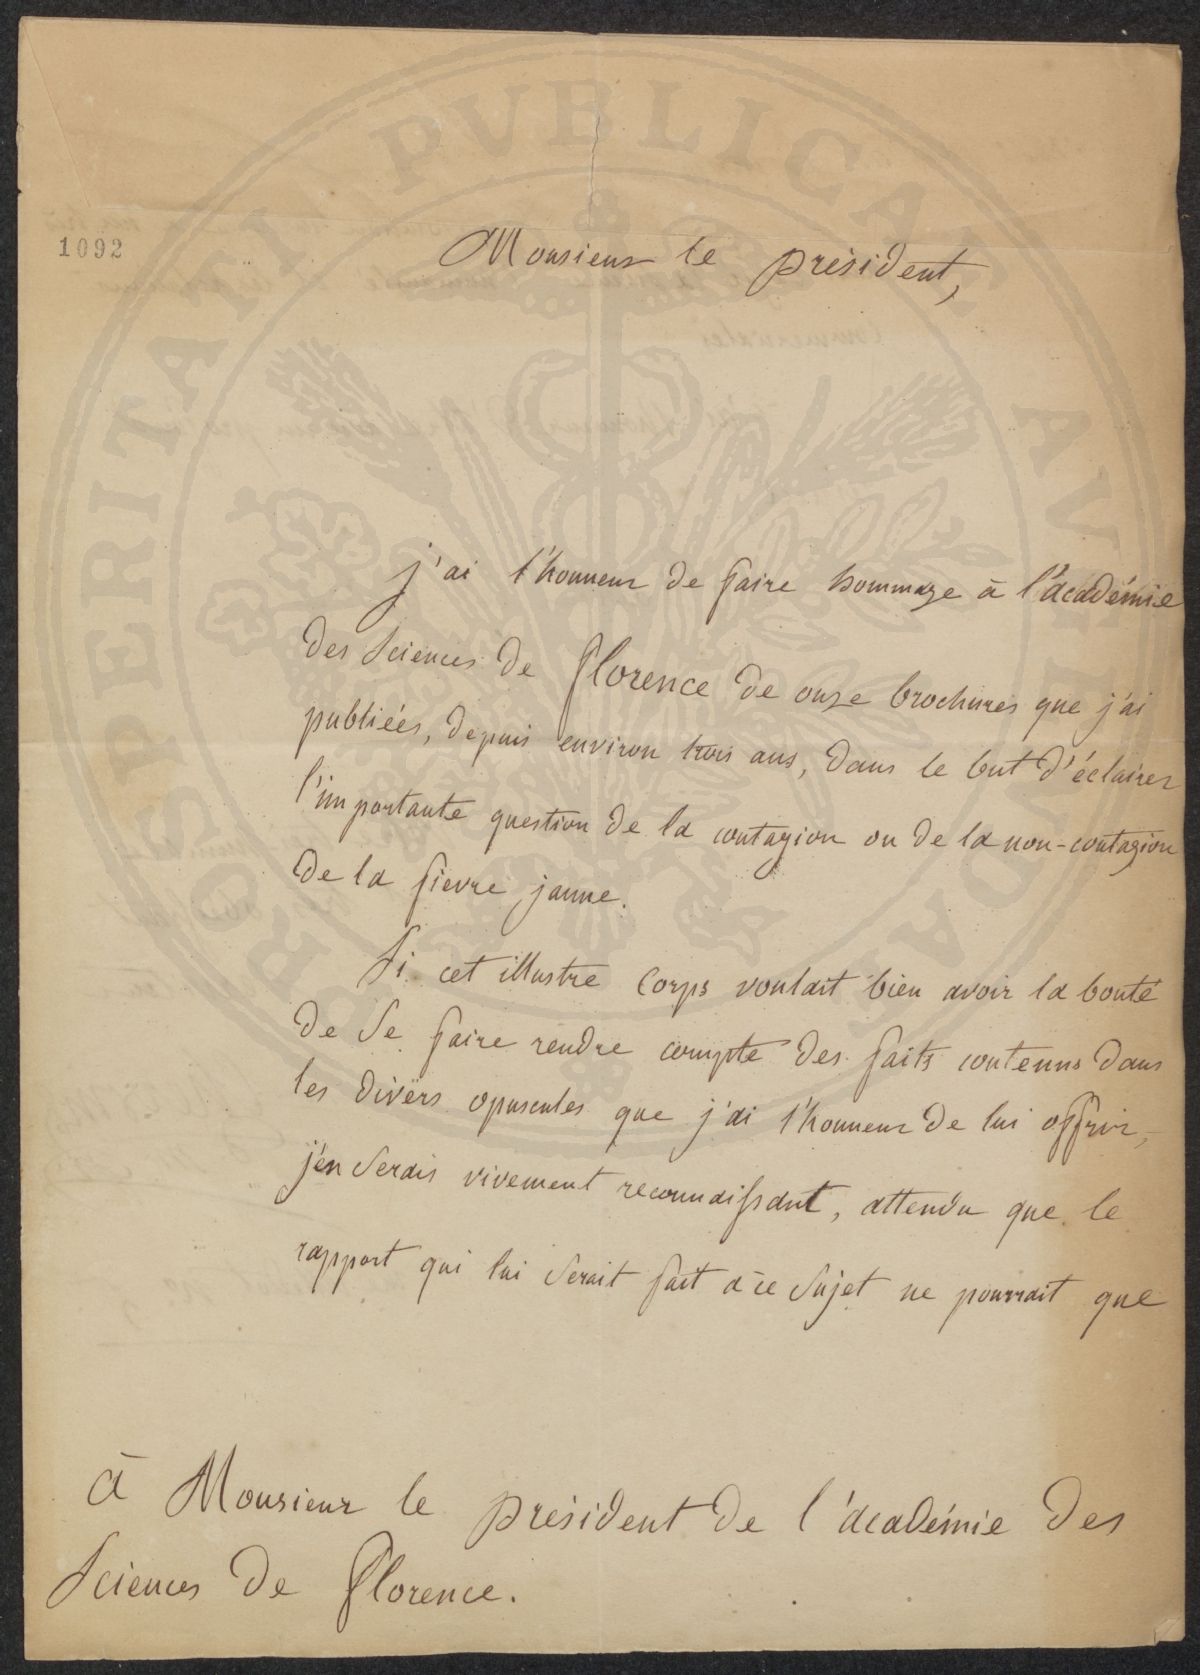 PROSPERITATI PUBLICAE AVGENDAE
1092
Monsieur le président,
j'ai l'honneur de faire hommage à l'académie
des Sciences de Florence de onze brochures que j'ai
publiées, depuis environ trois ans, dans le but d'éclairer
l'importante question de la contagion ou de la non-contagion
de la fievre jaune.
Si cet illustre Corps voulait bien avoir la bonté
de Se faire rendre compte des faits contenus dans
les divers opuscules que j'ai l'honneur de lui offrir,
j'en Serais vivement reconnaissant, attendu que le
rapport qui lui Serait fait à ce Sujet ne pourrait que
à Monsieur le président de l'académie des
Sciences de Florence.